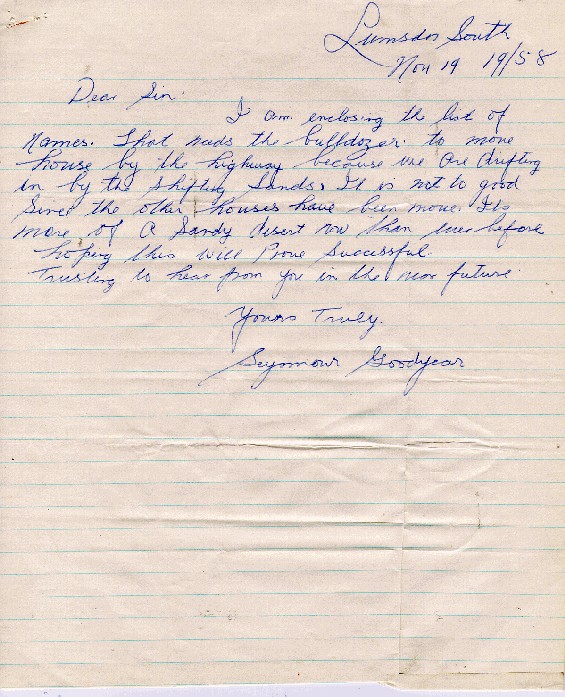 Lumsden South
Nov 19 19/58
Dear Sir.
I am enclosing the list of
names. That needs the bulldozer. to move
house by the highway because we are drifting
in by the shifting Sands, It is not to good
Since the other houses have been move. Its
more of a Sandy desert now than ever before
hoping this will Prove Successful.
Trusting to hear from you in the near future.
Yours Truly.
Seymour Goodyear